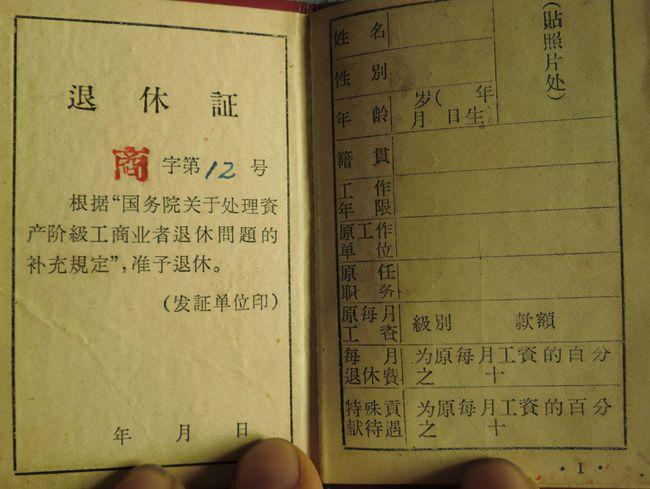 退休証
商 字第12号
根据“国务院关于处理資
产阶級工商业者退休問題的
补充規定”，准予退休。
（发証单位印）
年 月 日
姓名
性別
年齡 岁（ 年
月 日生
籍貫
工作
年限
原工作
单位
原任
职务
原每月
工資 級別 款額
每月 为原每月工資的百分
退休費 之 十
特殊貢 为原每月工資的百分
献待遇 之 十
（貼照片处）
·1·